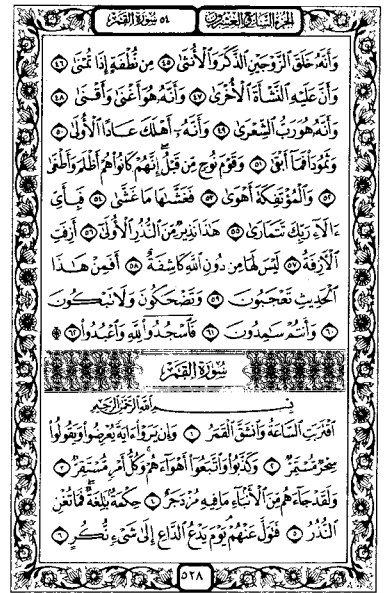 الجزء السابع والعشرون ٥٤ سورة القمر
وَأَنَّهُ خَلَقَ الزَّوْجَيْنِ الذَّكَرَ وَالْأُنثَىٰ ٤٥ مِن نُّطْفَةٍ إِذَا تُمْنَىٰ ٤٦
وَأَنَّ عَلَيْهِ النَّشْأَةَ الْأُخْرَىٰ ٤٧ وَأَنَّهُ هُوَ أَغْنَىٰ وَأَقْنَىٰ ٤٨
وَأَنَّهُ هُوَ رَبُّ الشِّعْرَىٰ ٤٩ وَأَنَّهُ أَهْلَكَ عَادًا الْأُولَىٰ ٥٠
وَثَمُودَا فَمَا أَبْقَىٰ ٥١ وَقَوْمَ نُوحٍ مِّن قَبْلُ إِنَّهُمْ كَانُوا هُمْ أَظْلَمَ وَأَطْغَىٰ
٥٢ وَالْمُؤْتَفِكَةَ أَهْوَىٰ ٥٣ فَغَشَّىٰهَا مَا غَشَّىٰ ٥٤ فَبِأَيِّ
ءَالَاءِ رَبِّكَ تَتَمَارَىٰ ٥٥ هَٰذَا نَذِيرٌ مِّنَ النُّذُرِ الْأُولَىٰ ٥٦ أَزِفَتِ
الْآزِفَةُ ٥٧ لَيْسَ لَهَا مِن دُونِ اللَّهِ كَاشِفَةٌ ٥٨ أَفَمِنْ هَٰذَا
الْحَدِيثِ تَعْجَبُونَ ٥٩ وَتَضْحَكُونَ وَلَا تَبْكُونَ
٦٠ وَأَنتُمْ سَامِدُونَ ٦١ فَاسْجُدُوا لِلَّهِ وَاعْبُدُوا ۩ ٦٢
سورة القمر
بِسْمِ اللَّهِ الرَّحْمَٰنِ الرَّحِيمِ
اقْتَرَبَتِ السَّاعَةُ وَانشَقَّ الْقَمَرُ ١ وَإِن يَرَوْا ءَايَةً يُعْرِضُوا وَيَقُولُوا
سِحْرٌ مُّسْتَمِرٌّ ٢ وَكَذَّبُوا وَاتَّبَعُوا أَهْوَاءَهُمْ وَكُلُّ أَمْرٍ مُّسْتَقِرٌّ ٣
وَلَقَدْ جَاءَهُم مِّنَ الْأَنبَاءِ مَا فِيهِ مُزْدَجَرٌ ٤ حِكْمَةٌ بَالِغَةٌ فَمَا تُغْنِ
النُّذُرُ ٥ فَتَوَلَّ عَنْهُمْ يَوْمَ يَدْعُ الدَّاعِ إِلَىٰ شَيْءٍ نُّكُرٍ ٦
٥٢٨